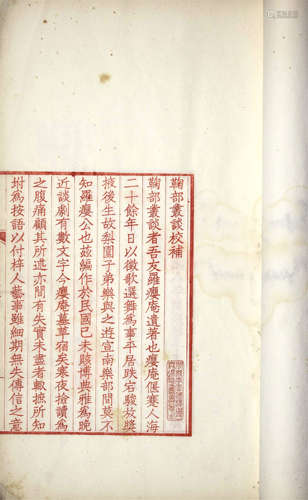 鞠部叢談校補
鞠部叢談者吾友羅癭庵遺著也癭庵偃蹇人海
二十餘年日以徵歌選舞為事平居跌宕駿放獎
掖後生故梨園子弟樂與之遊宣南樂部間莫不
知羅癭公也茲編作於民國己未賅博典雅為晚
近談劇有數文字今癭庵墓草宿矣寒夜撿讀為
之腹痛顧其所述亦間有失實未盡者輙摭所知
坿為按語以付梓人藝事雖細期無失傳信之意